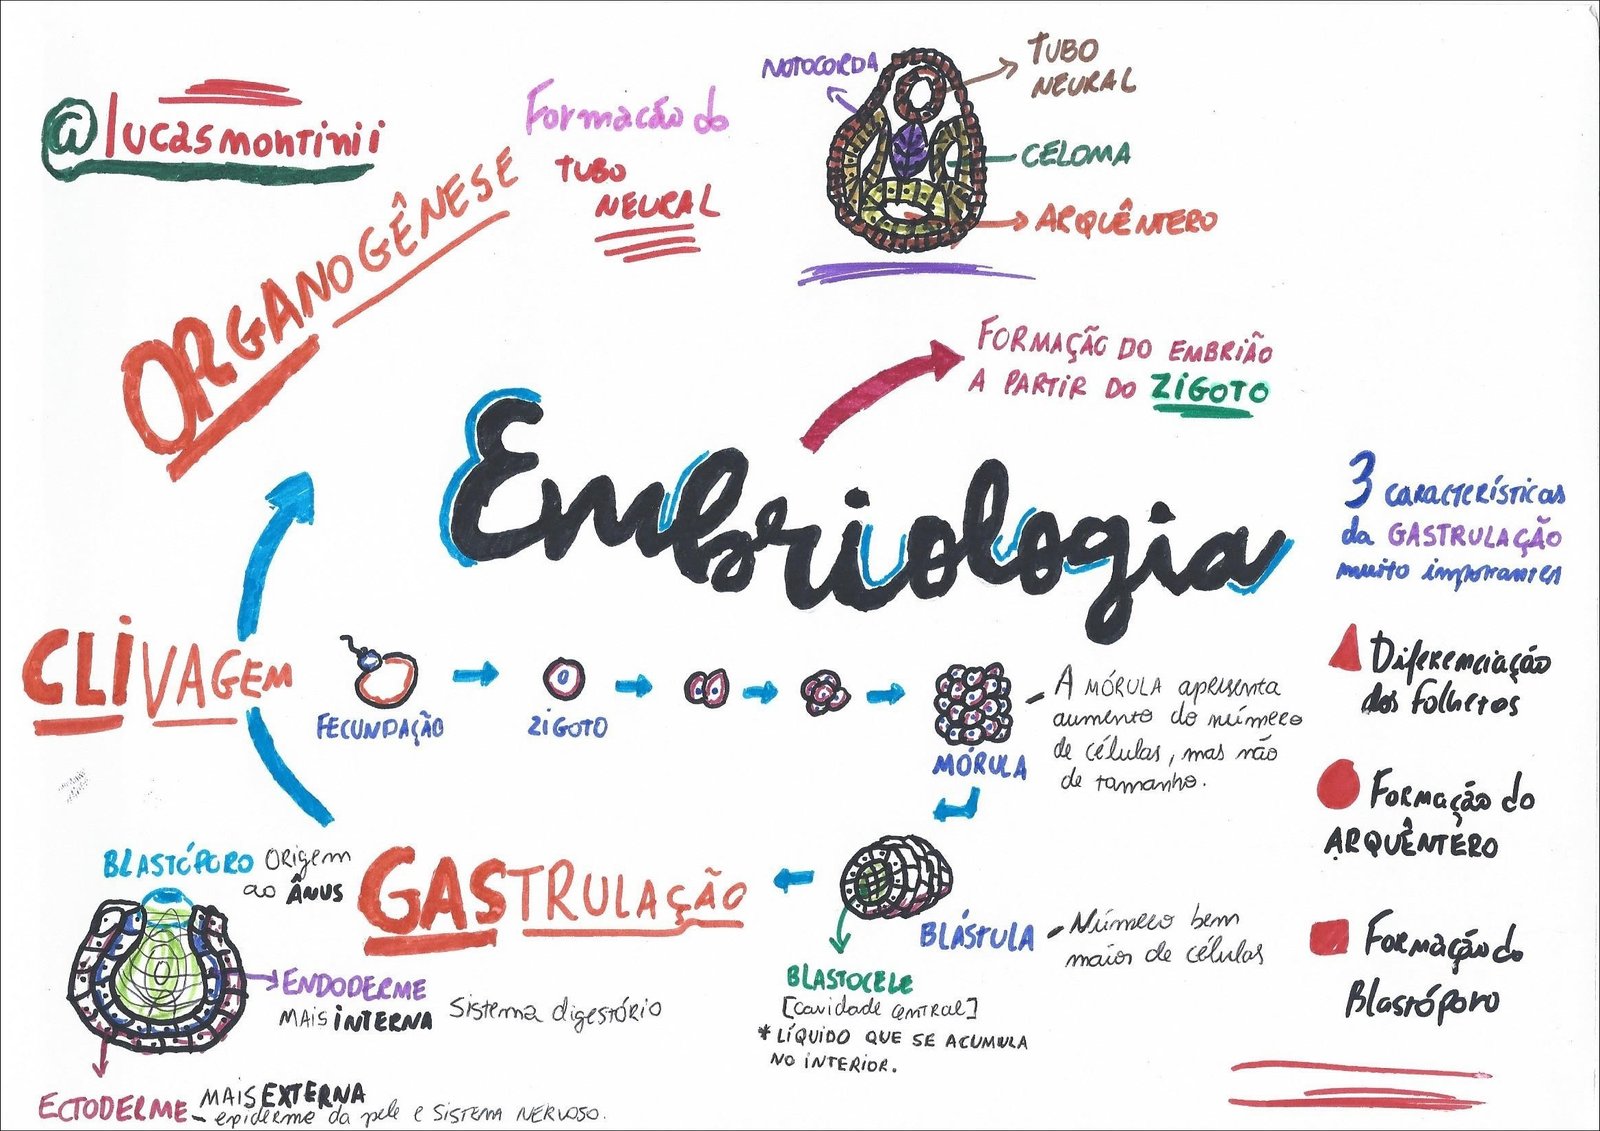 @lucasmontinii
ORGANOGÊNESE
Formação do
TUBO
NEURAL
NOTOCORDA
TUBO
NEURAL
CELOMA
ARQUÊNTERO
FORMAÇÃO DO EMBRIÃO
A PARTIR DO ZIGOTO
Embriologia
3 características
da GASTRULAÇÃO
muito importantes
Diferenciação
dos Folhetos
Formação do
ARQUÊNTERO
Formação do
Blastóporo
CLIVAGEM
FECUNDAÇÃO
ZIGOTO
MÓRULA
A MÓRULA apresenta
aumento do número
de células, mas não
de tamanho.
BLÁSTULA
Número bem
maior de células
BLASTOCELE
[cavidade central]
* LÍQUIDO QUE SE ACUMULA
NO INTERIOR.
GASTRULAÇÃO
BLASTÓPORO origem
ao ÂNUS
ENDODERME
MAIS INTERNA
Sistema digestório
ECTODERME
MAIS EXTERNA
- epiderme da pele e SISTEMA NERVOSO.